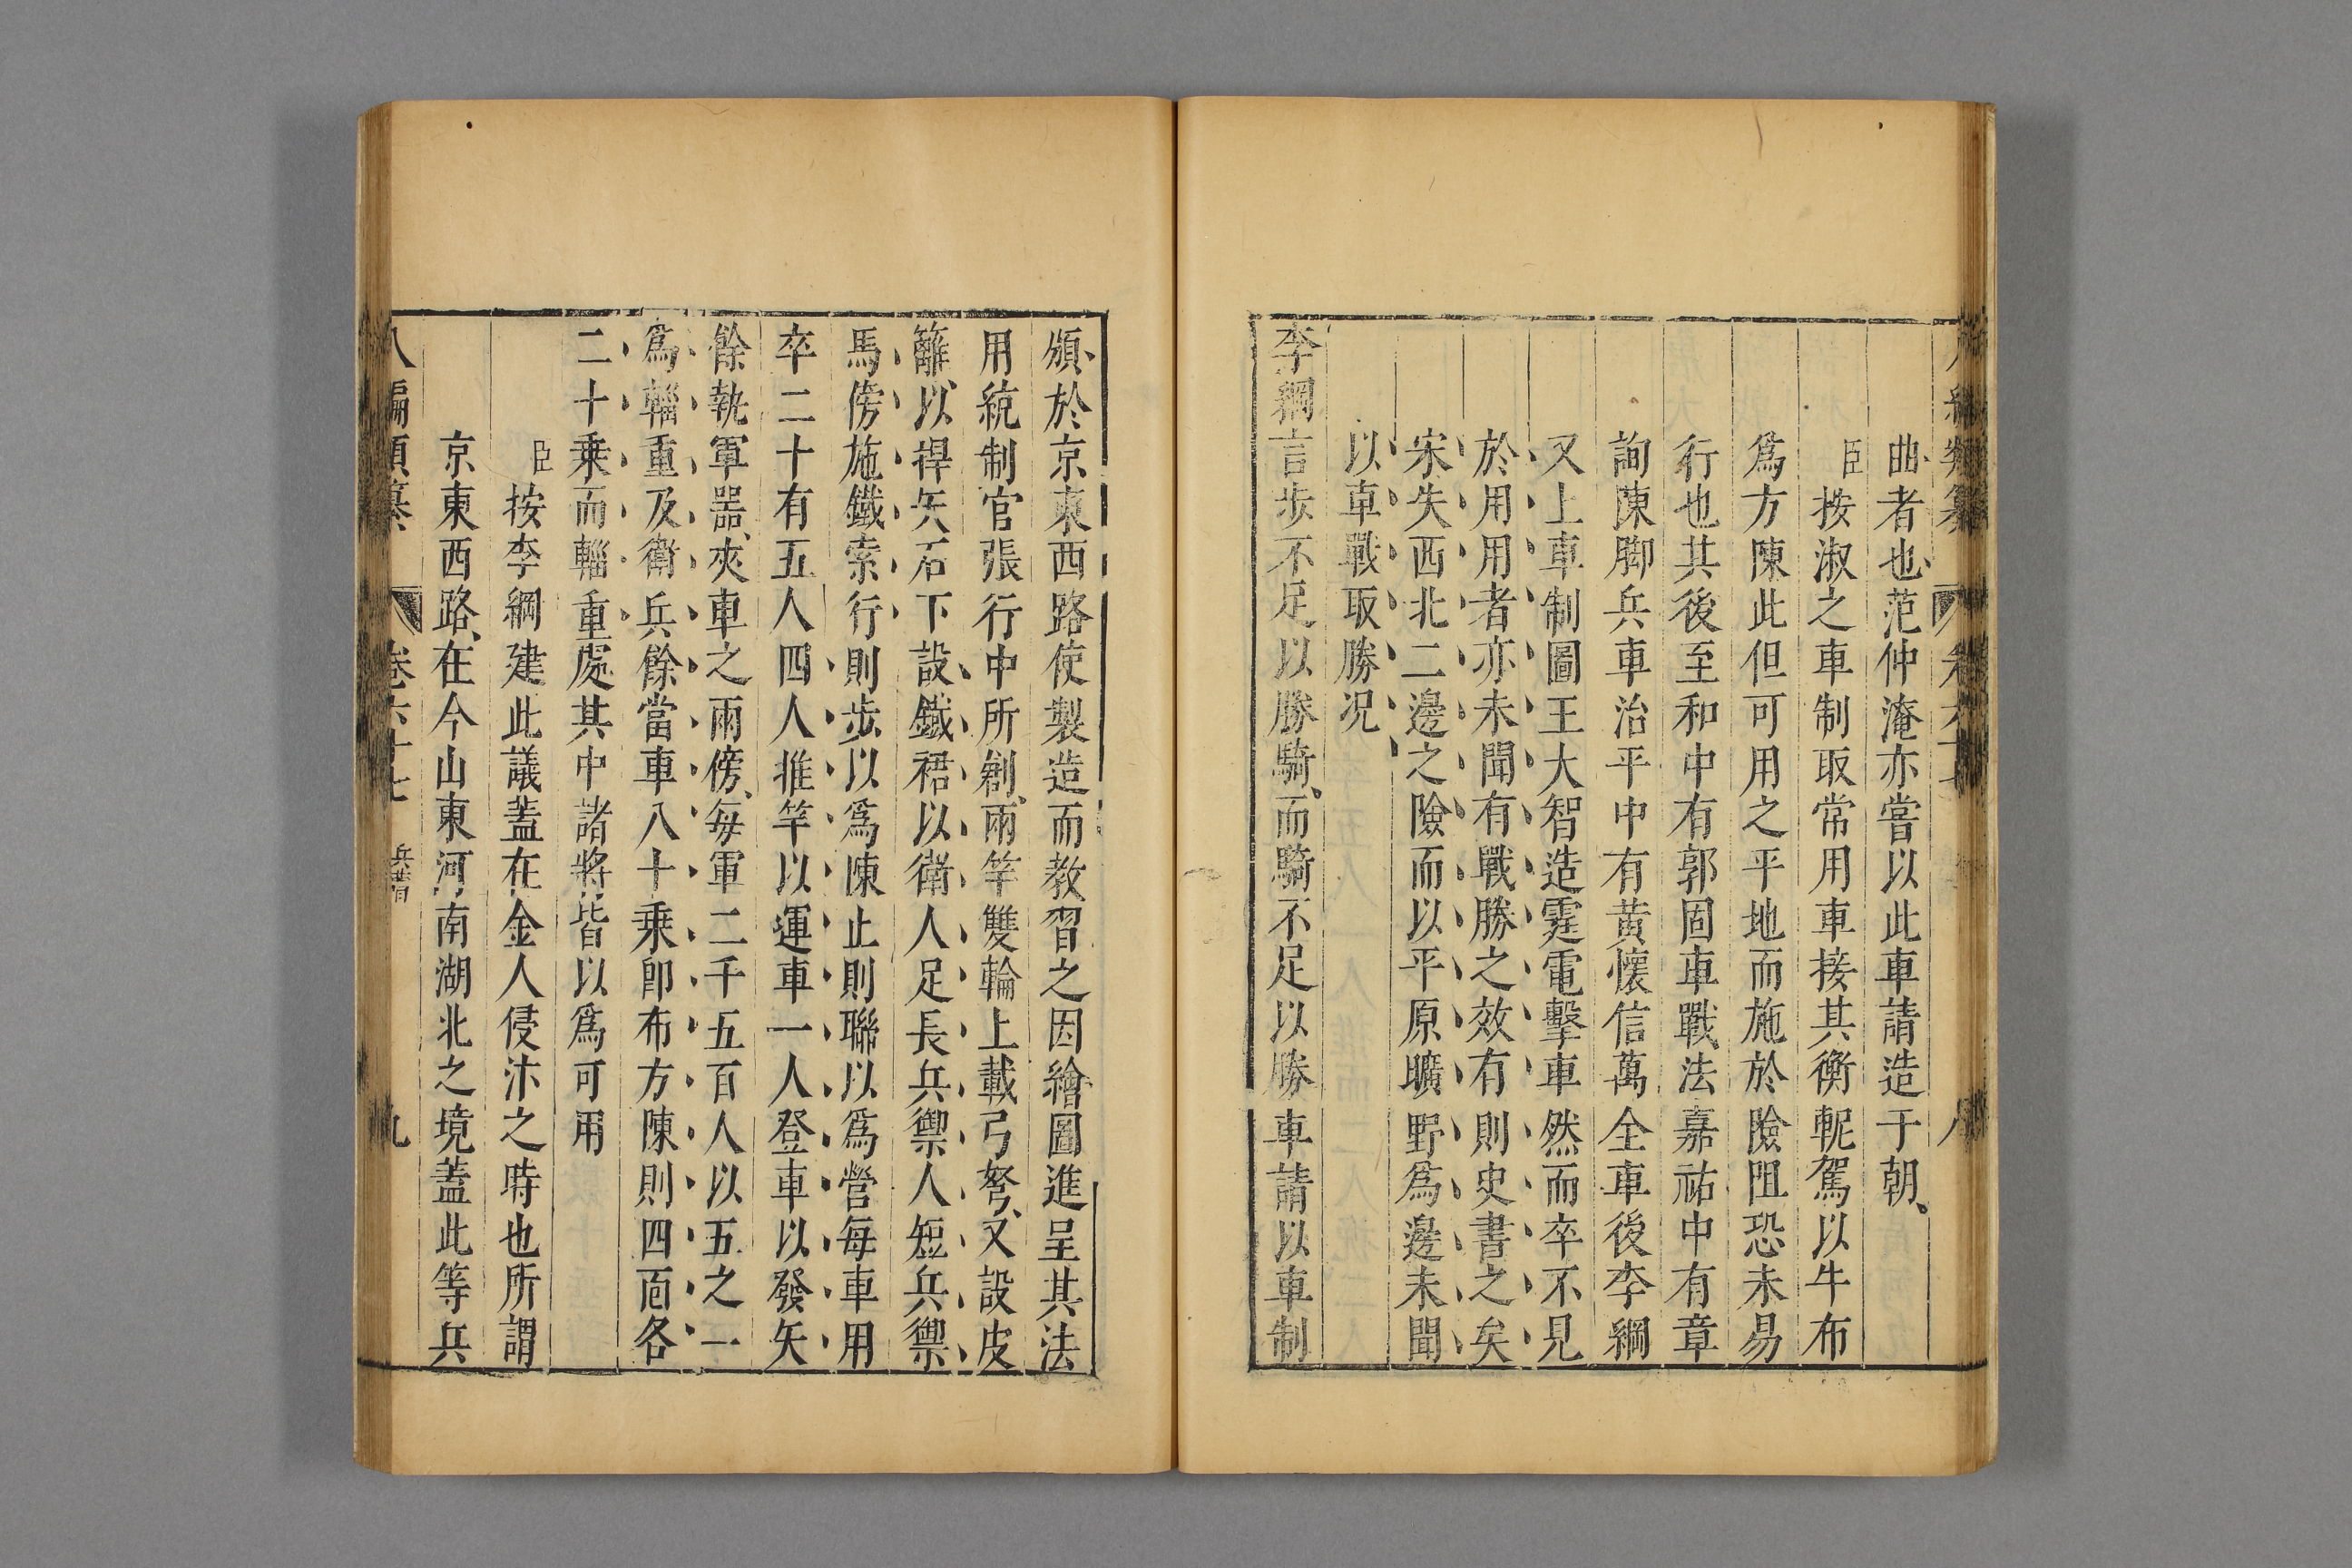 曲者也范仲淹亦嘗以此車請造于朝
臣按淑之車制取常用車接其衡軛駕以牛布
爲方陳此但可用之平地而施於險阻恐未易
行也其後至和中有郭固車戰法嘉祐中有章
詢陳脚兵車治平中有黃懷信萬全車後李綱
又上車制圖王大智造霆電擊車然而卒不見
於用用者亦未聞有戰勝之效有則史書之矣
宋失西北二邊之險而以平原曠野爲邊未聞
以車戰取勝况
李綱言步不足以勝騎而騎不足以勝車請以車制
頒於京東西路使製造而教習之因繪圖進呈其法
用統制官張行中所創兩竿雙輪上載弓弩又設皮
籬以捍矢石下設鐵裙以衛人足長兵禦人短兵禦
馬傍施鐵索行則步以爲陳止則聯以爲營每車用
卒二十有五人四人推竿以運車一人登車以發矢
餘執軍器夾車之兩傍每軍二千五百人以五之一
爲輜重及衛兵餘當車八十乘卽布方陳則四面各
二十乘而輜重處其中諸將皆以爲可用
臣按李綱建此議蓋在金人侵汴之時也所謂
京東西路在今山東河南湖北之境蓋此等兵
八編類纂 卷六十七 兵曹 九